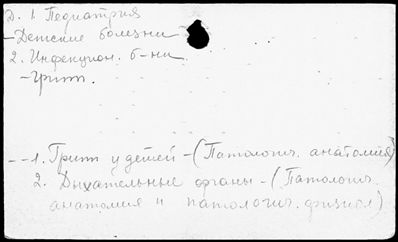 Д. 1. Педиатрия
- Детские болезни
2. Инфекцион. б-ни
- Грипп.
- - 1. Грипп у детей - (Патологич. анатомия)
2. Дыхательные органы - (Патологич.
анатомия и патологич. физиол)